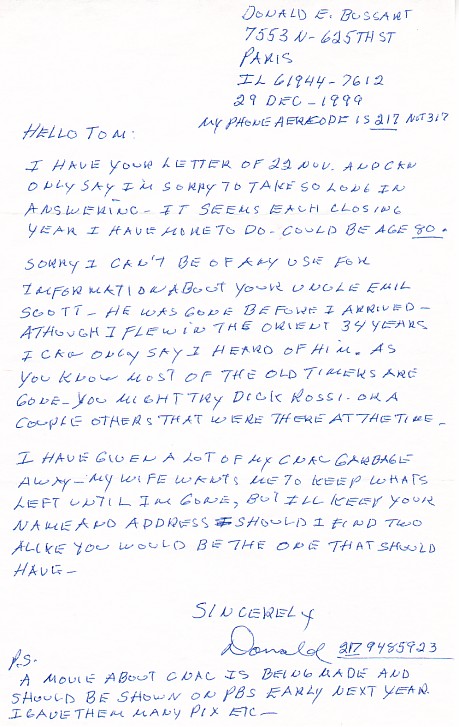 DONALD E. BUSSART
7553 N-625TH ST
PARIS
IL 61944-7612
29 DEC-1999
MY PHONE AERACODE IS 217 NOT 317
HELLO TOM:
I HAVE YOUR LETTER OF 22 NOV. AND CAN
ONLY SAY I'M SORRY TO TAKE SO LONG IN
ANSWERING- IT SEEMS EACH CLOSING
YEAR I HAVE MORE TO DO- COULD BE AGE 80.
SORRY I CAN'T BE OF ANY USE FOR
INFORMATION ABOUT YOUR UNCLE EMIL
SCOTT- HE WAS GONE BEFORE I ARRIVED-
ATHOUGH I FLEW IN THE ORIENT 34 YEARS
I CAN ONLY SAY I HEARD OF HIM. AS
YOU KNOW MOST OF THE OLD TIMERS ARE
GONE- YOU MIGHT TRY DICK ROSSI- OR A
COUPLE OTHERS THAT WERE THERE AT THE TIME-
I HAVE GIVEN A LOT OF MY CNAC GARBAGE
AWAY- MY WIFE WANTS ME TO KEEP WHATS
LEFT UNTIL IM GONE, BUT I'LL KEEP YOUR
NAME AND ADDRESS SHOULD I FIND TWO
ALIKE YOU WOULD BE THE ONE THAT SHOULD
HAVE-
SINCERELY
Donald 217 9485923
P.S.
A MOVIE ABOUT CNAC IS BEING MADE AND
SHOULD BE SHOWN ON PBS EARLY NEXT YEAR
I GAVE THEM MANY PIX ETC-